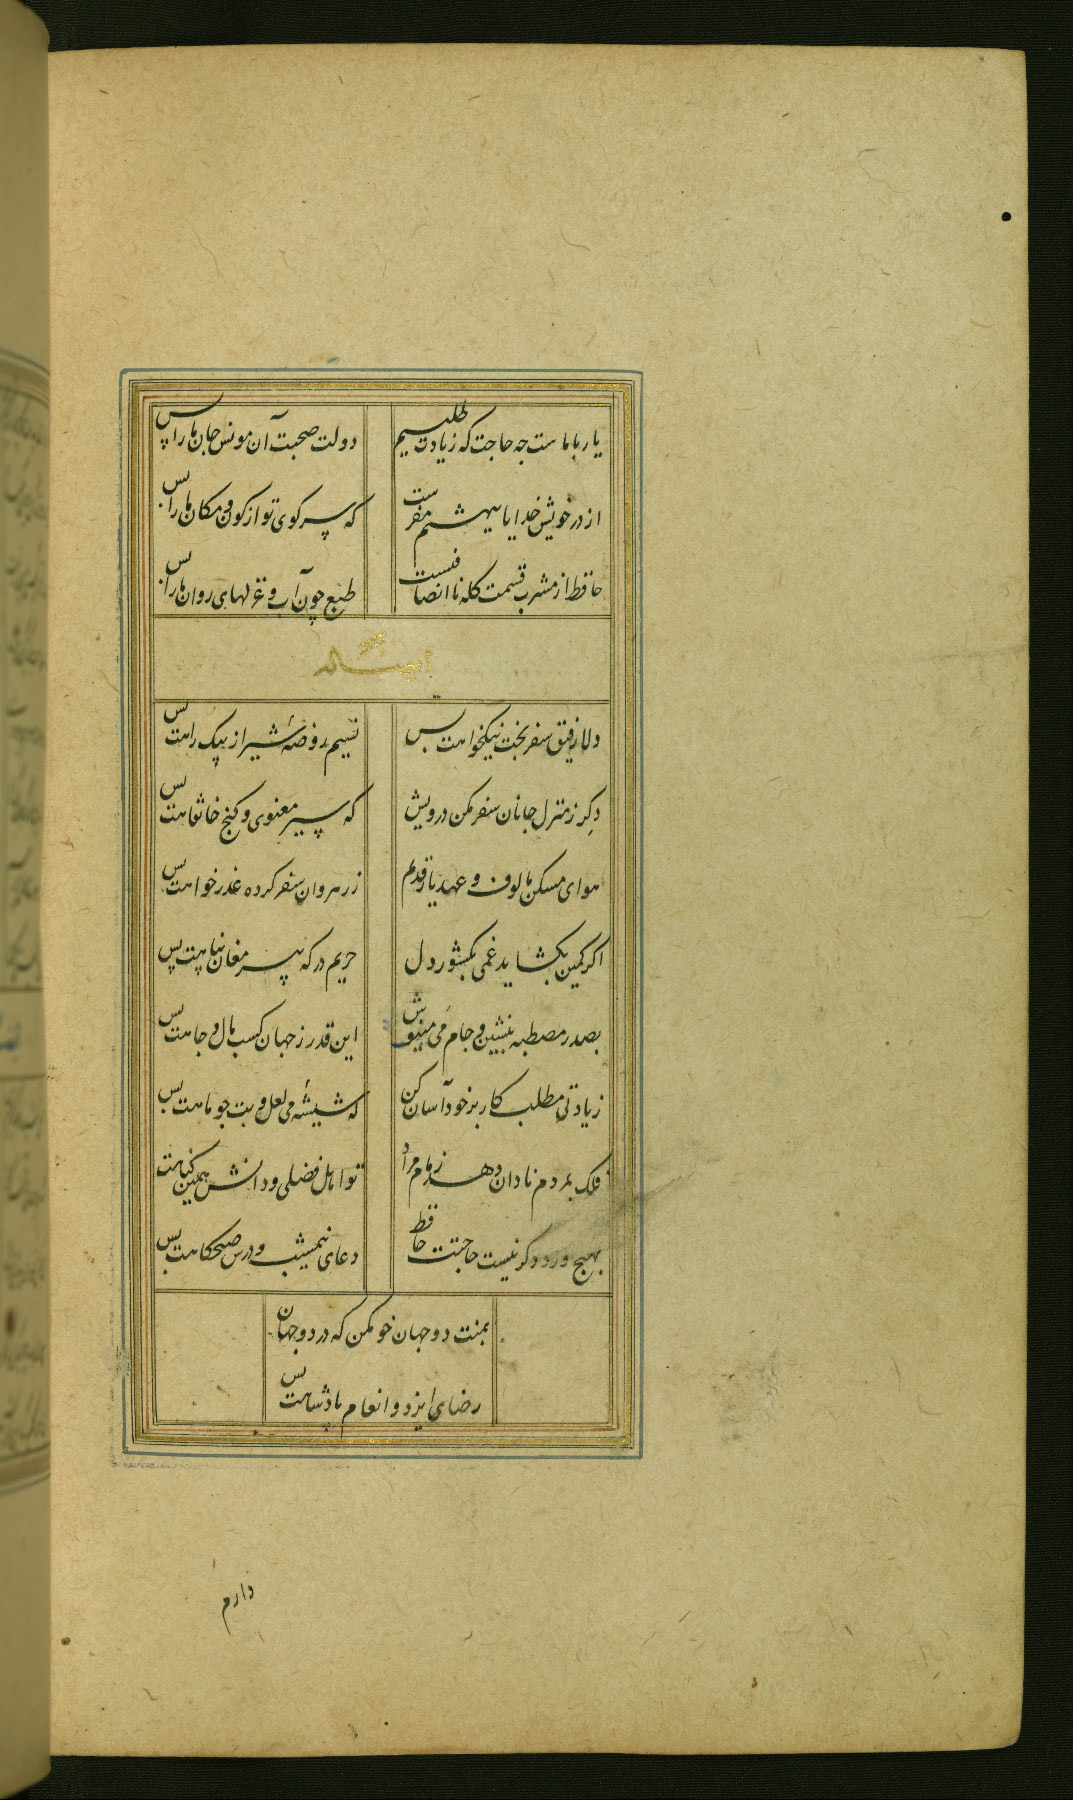 یار باماست چه حاجت که زیادت طلبیم دولت صحبت آن مونس جان ما را بس
از در خویش خدایا ببهشتم مفرست که سر کوی تو از کون و مکان ما را بس
حافظ از مشرب قسمت کله ناانصافیست طبع چون آب و غزلهای روان ما را بس
دلا رفیق سفر بخت نیکخواهت بس نسیم روضهٔ شیراز پیک راهت بس
دکر ز منزل جانان سفر مکن درویش که سیر معنوی و کنج خانقاهت بس
هوای مسکن مالوف و عهد یار قدیم ز رهروان سفر کرده عذر خواهت بس
اکر کمین بکشاید غمی بکشور دل حریم درکه پیر مغان پناهت بس
بصدر مصطبه بنشین و جام می مینوش این قدر ز جهان کسب مال و جاهت بس
زیادتی مطلب کار بر خود آسان کن که شیشهٔ می لعل و بت جو ماهت بس
فلک بمردم نادان دهد زمام مراد تو اهل فضلی و دانش همین کناهت بس
بهیج ورد دکر نیست حاجتت حافظ دعای نیمشب و درس صبحکاهت بس
بمنت دو جهان خو مکن که در دو جهان
رضای ایزد و انعام پادشاهت بس
دارم